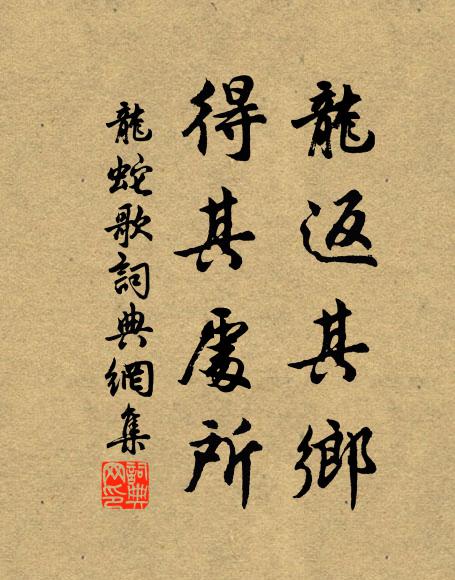 龍返其鄉
得其處所
龍蛇歌詞典網集
詞典網印